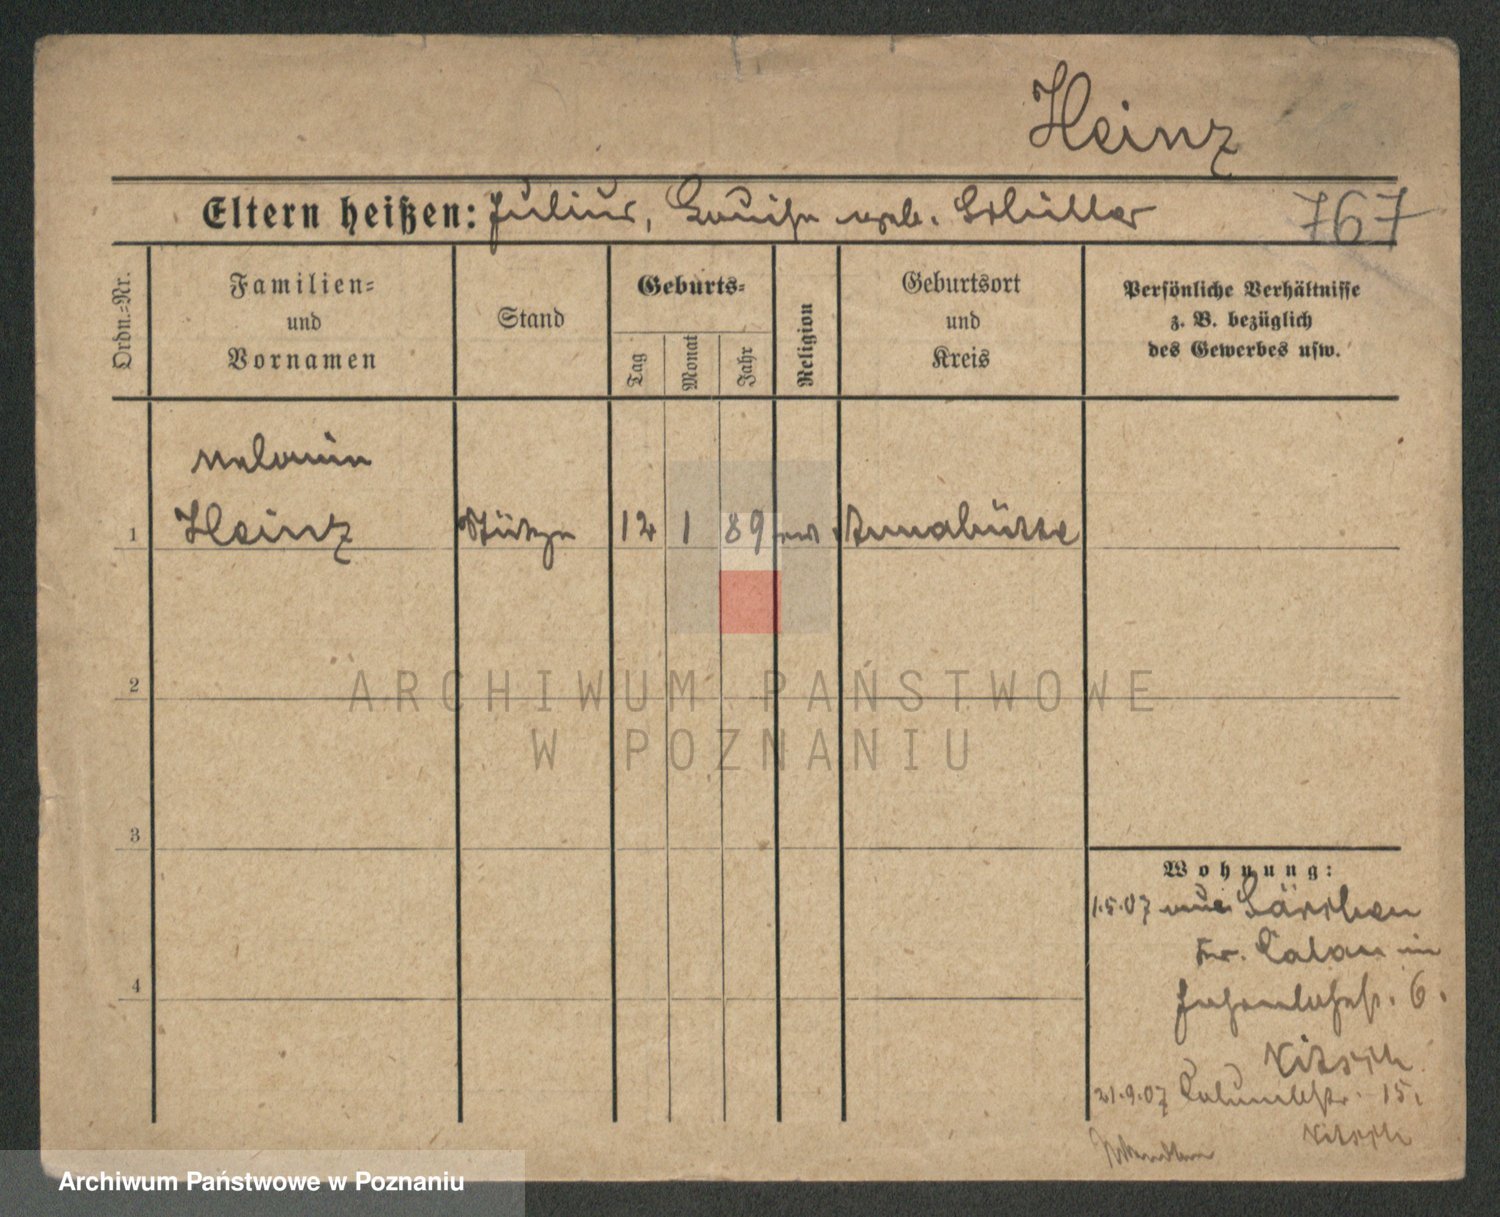 Heinz
Eltern heißen: Julius, Louise geb. Schüller
767
Ordn.-Nr.
Familien= und Vornamen
Stand
Geburts=
Tag
Monat
Jahr
Religion
Geburtsort und Kreis
Persönliche Verhältnisse
z. B. bezüglich
des Gewerbes usw.
Melanie
1 Heinz Stütze 12 1 89 Annahütte
2
ARCHIWUM PAŃSTWOWE
W POZNANIU
3
4
Wohnung:
1.5.07
Kr. Calau in
6.
Kitsch
21.9.07 15.
Kitsch
Archiwum Państwowe w Poznaniu